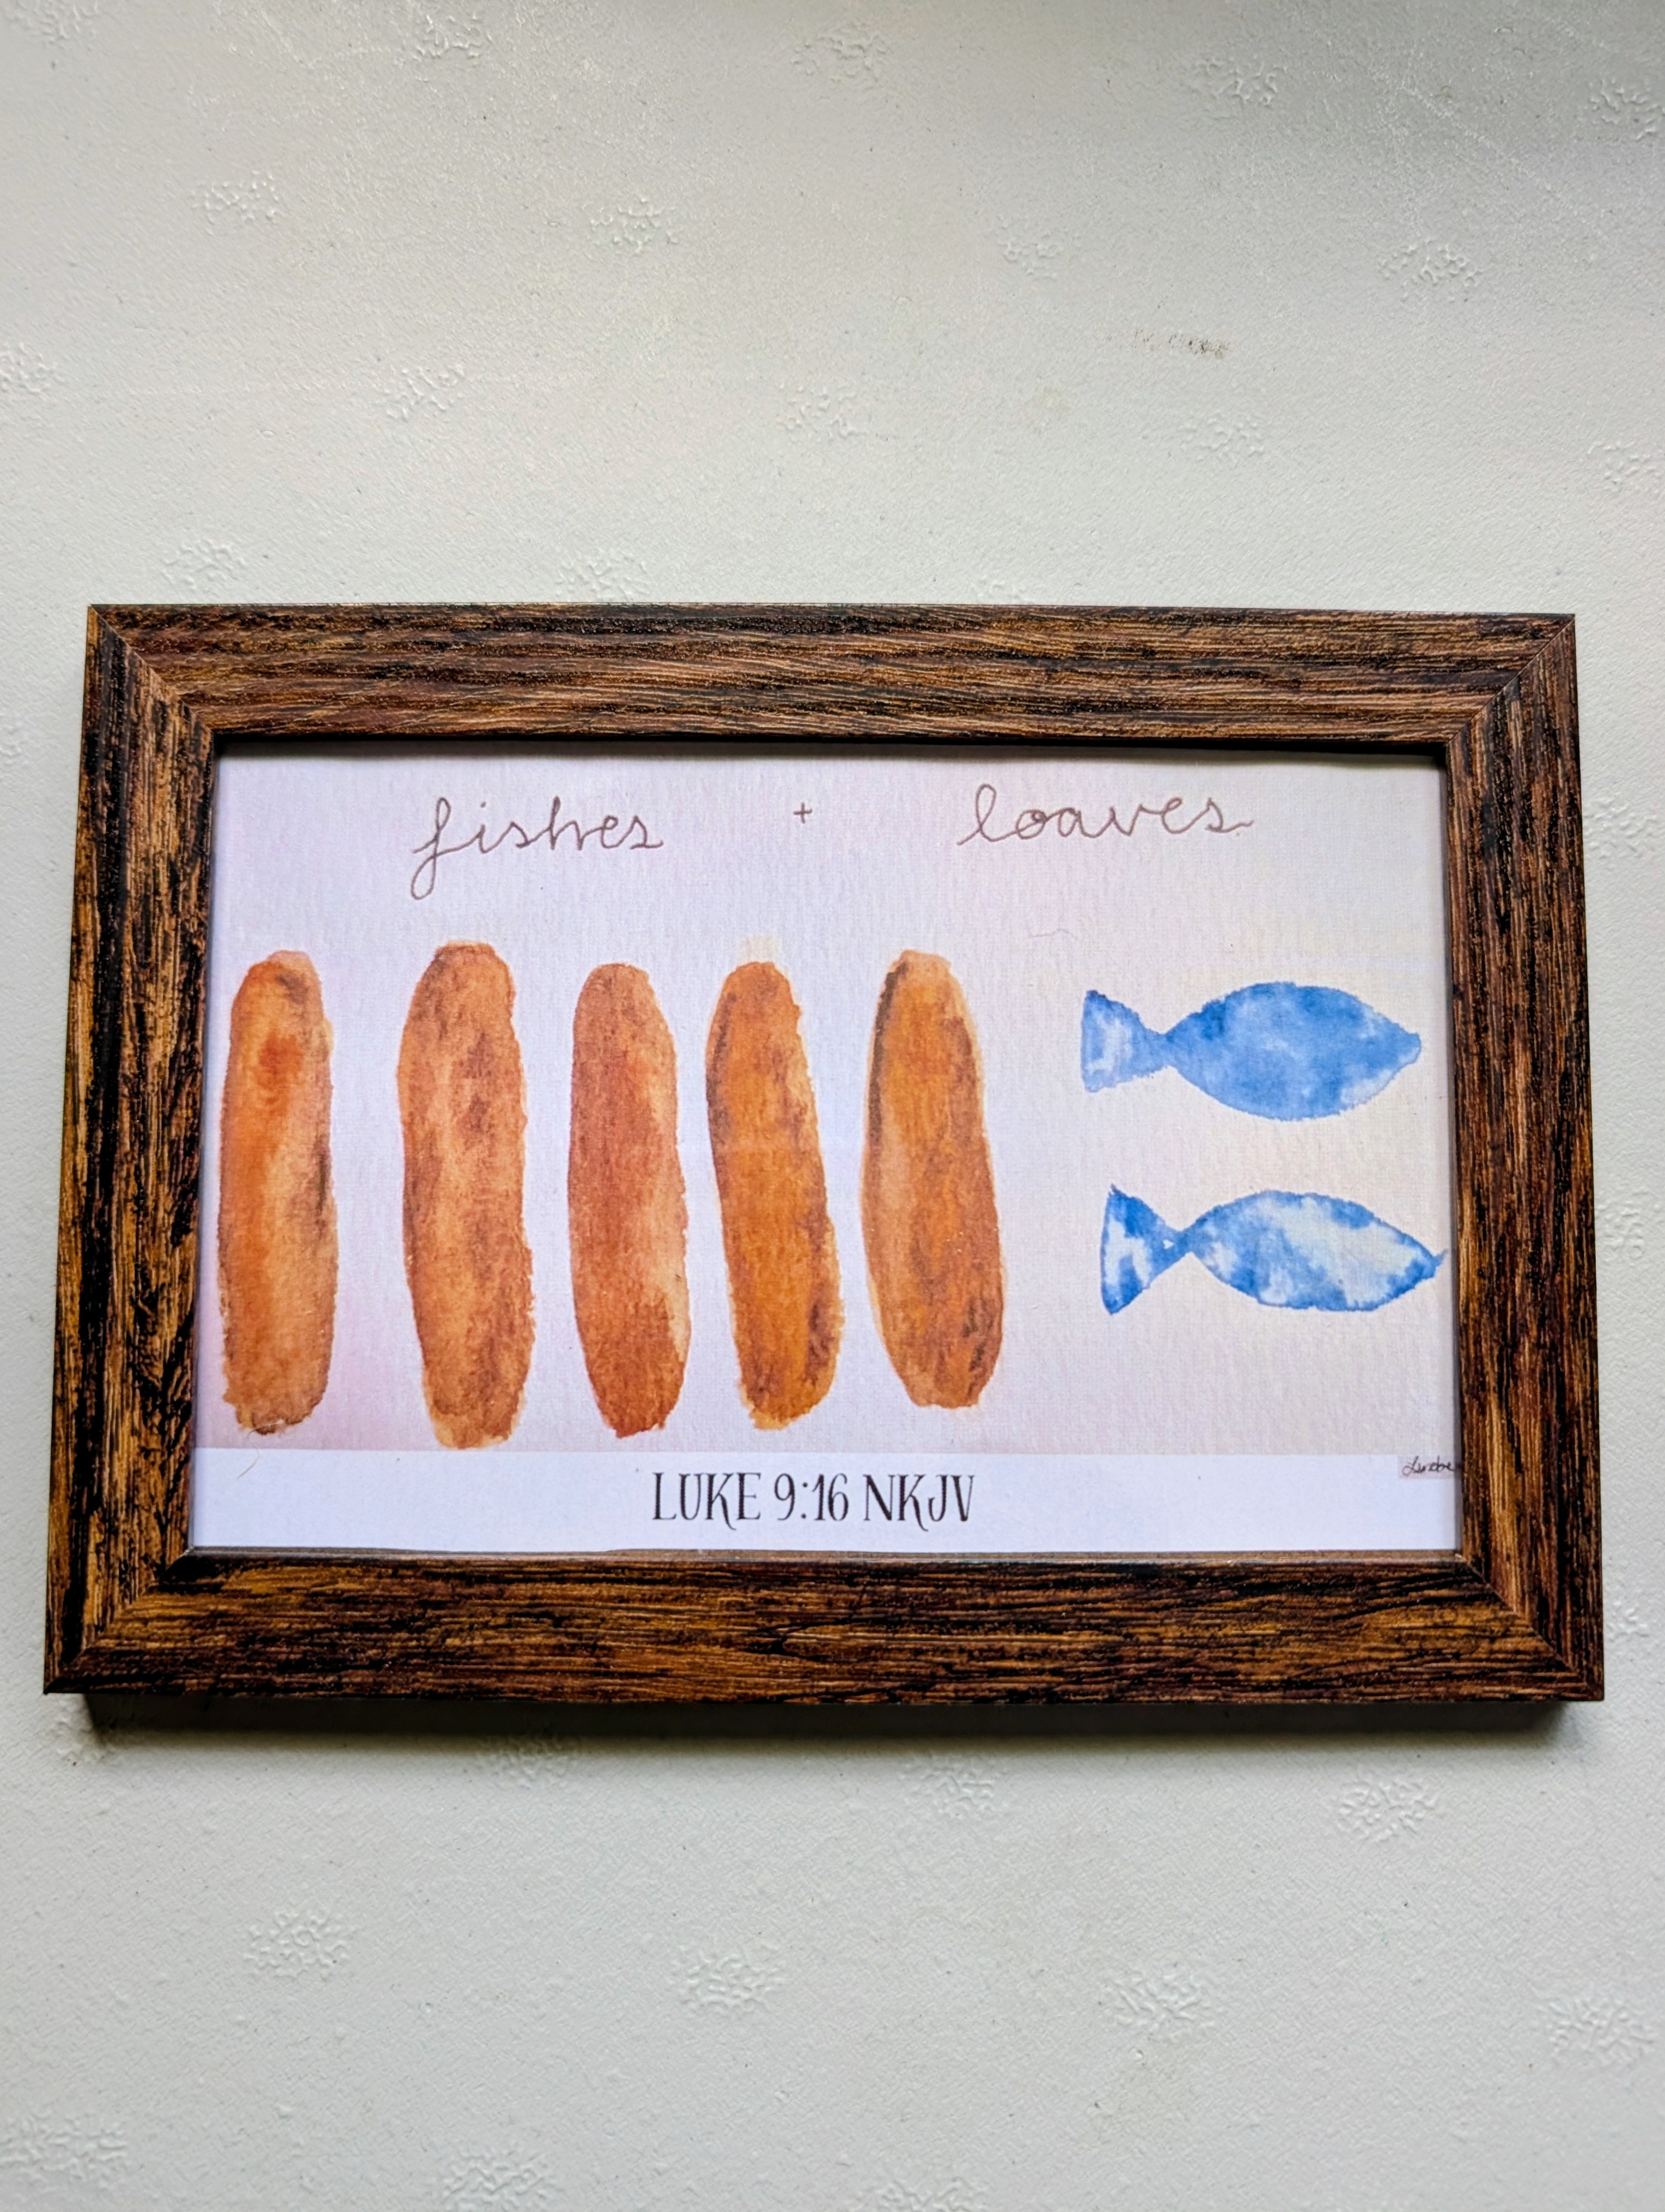 fishes + loaves
LUKE 9:16 NKJV